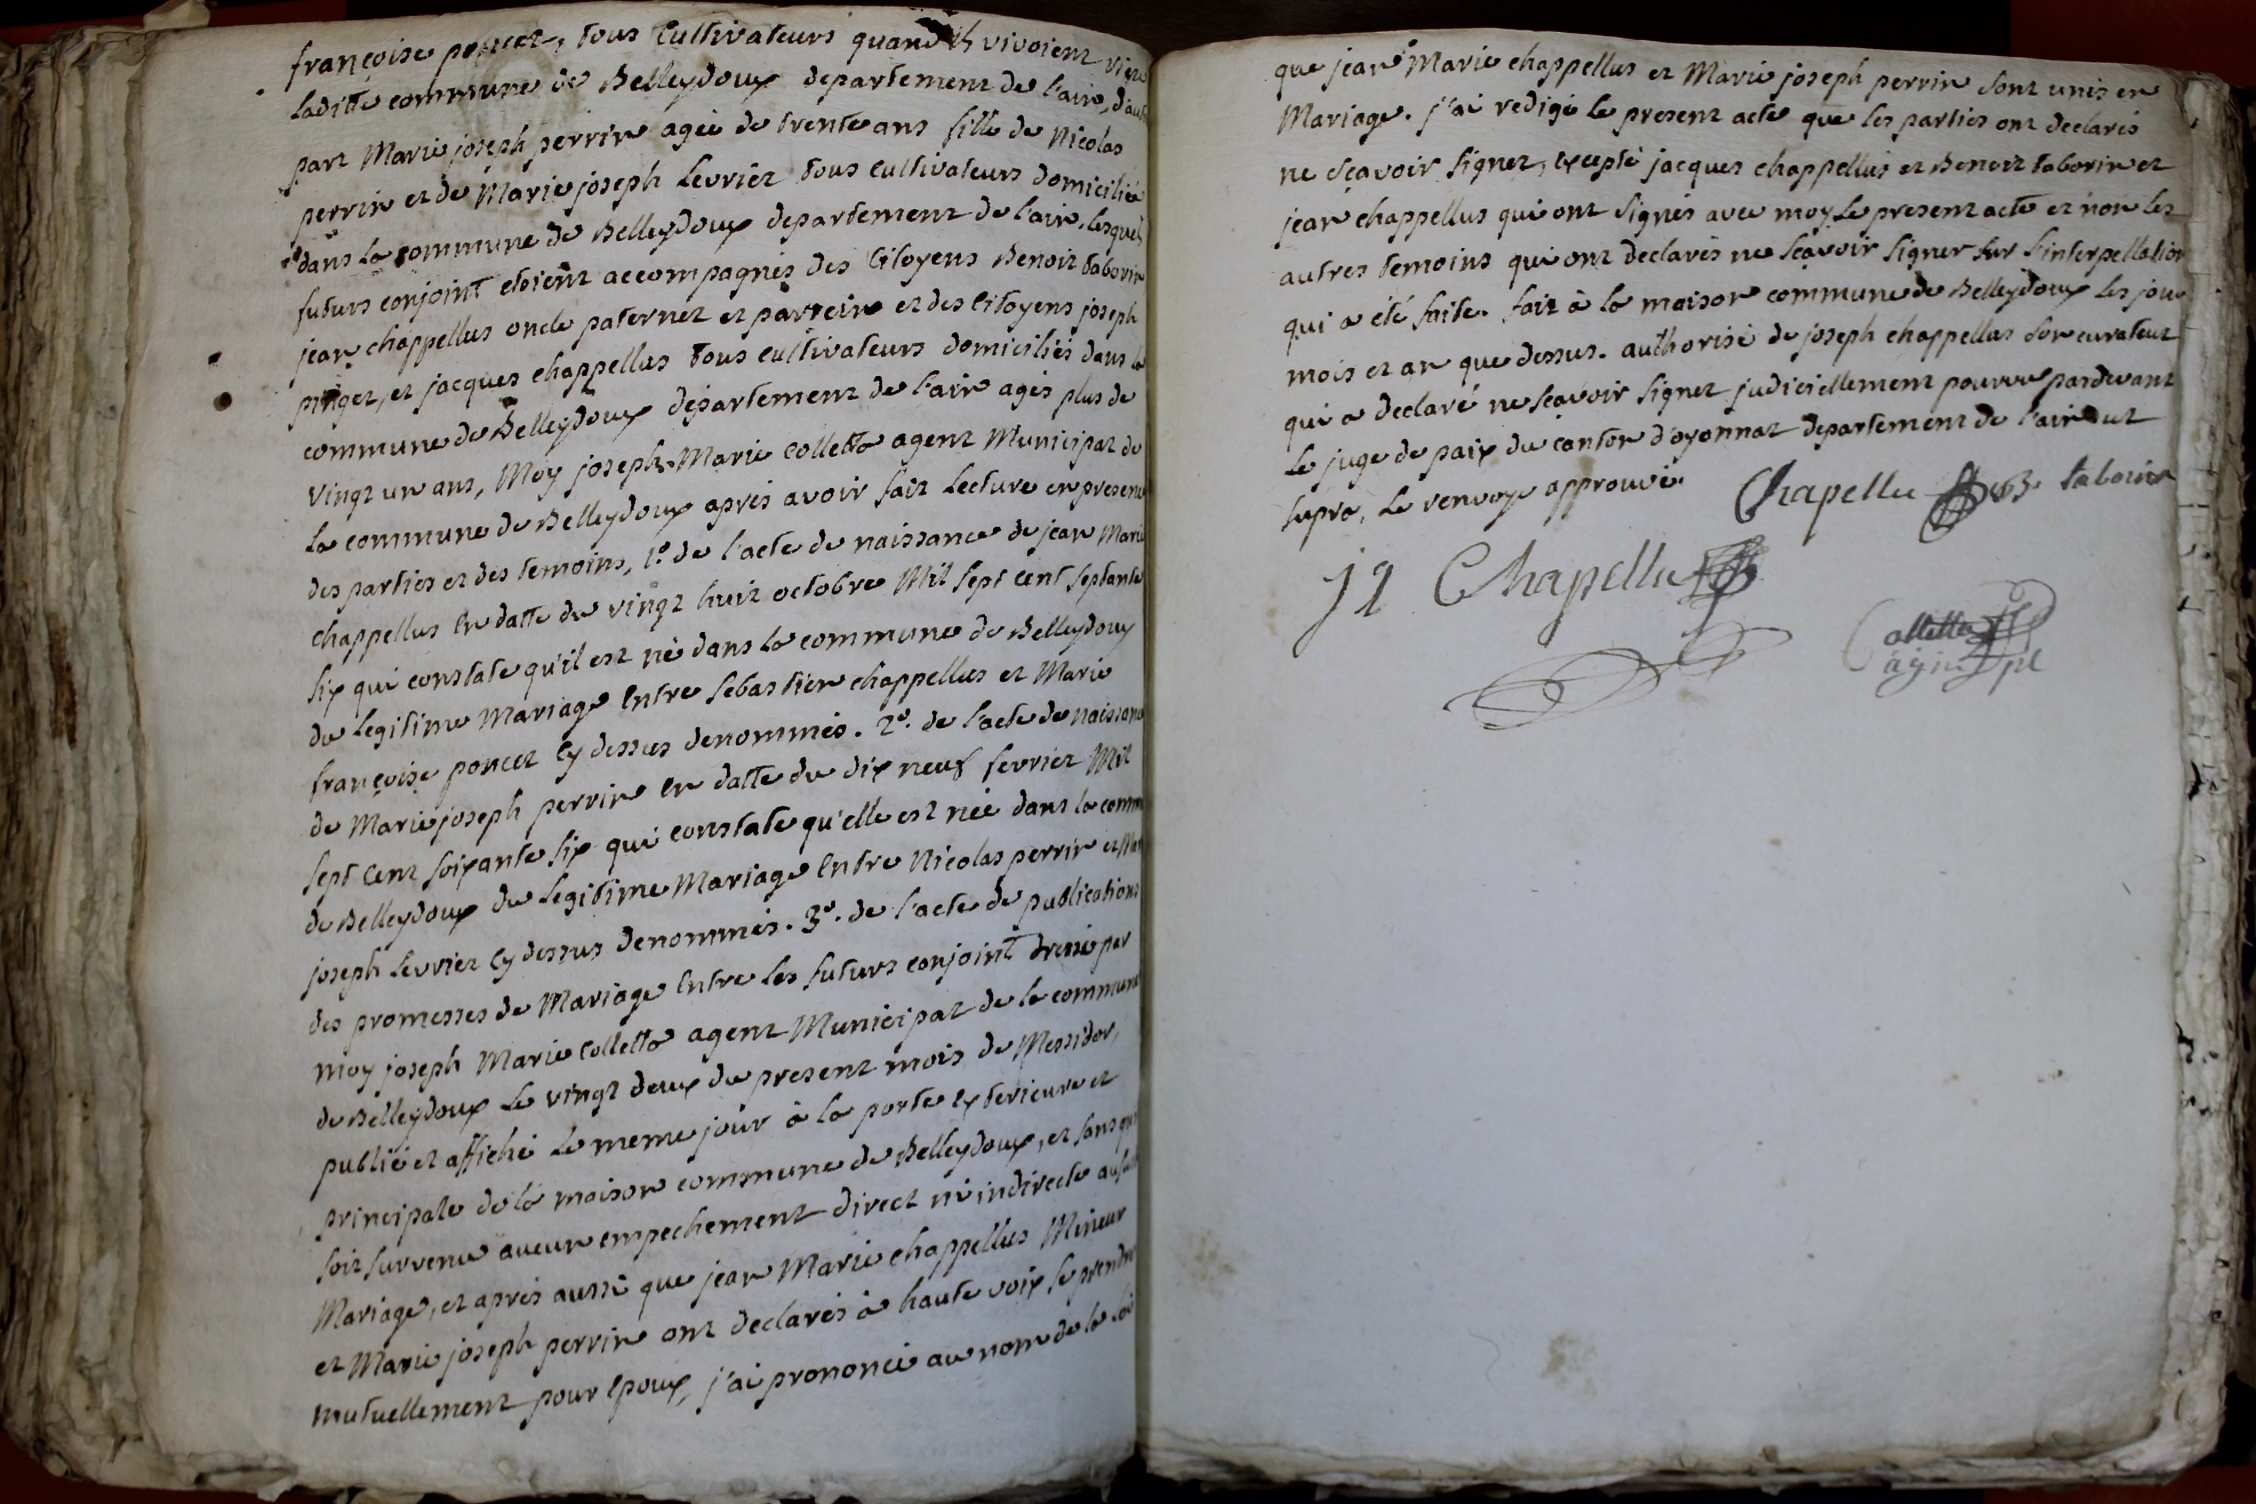 françoise poncet, tous Cultivateurs quand ils vivoient
laditte commune de Belleydoux departement de l'ain, d'autre
part Marie joseph perrin agée de trente ans fille de Nicolas
perrin et de Marie joseph Levrier tous cultivateurs domiciliés
dans la commune de Belleydoux departement de l'ain. lesquels
futurs conjoint etoient accompagnés des Citoyens Benoit taborin
jean chappellus oncle paternel et parrein et des Citoyens joseph
pinget, et jacques chappellus tous cultivateurs domiciliés dans la
commune de Belleydoux departement de l'ain agés plus de
vingt un ans, Moy joseph Marie Colletta agent Municipal de
la commune de Belleydoux après avoir fait Lecture en presence
des parties et des temoins, 1º. de l'acte de naissance de jean Marie
chappellus En datte du vingt huit octobre Mil sept Cent septante
six qui constate qu'il est né dans la commune de Belleydoux
du legitime Mariage Entre sebastien chappellus et Marie
françoise poncet Cy dessus denommés. 2º. de l'acte de naissance
de Marie joseph perrin En datte du dix neuf fevrier Mil
sept Cent soixante six qui constate qu'elle est née dans la comm
de Belleydoux du legitime Mariage Entre Nicolas perrin et Mar
joseph Levrier Cy dessus denommés. 3º. de l'acte de publications
des promesses de Mariage Entre les futurs conjoint dressé par
moy joseph Marie Colletta agent Municipal de la commune
de Belleydoux Le vingt deux du present mois de Messidor,
publié et affiché Le meme jour à la porte Exterieure et
principale de la maison commune de Belleydoux, et sans qu
soit survenu aucun empechement direct ni indirecte au
Mariage, et après aussi que jean Marie chappellus Mineur
et Marie joseph perrin ont declarés à haute voix se prendre
mutuellement pour Epoux, j'ai prononcé au nom de la loi
que jean Marie chappellus et Marie joseph perrin sont unis en
Mariage. j'ai redigé le present acte que les parties ont declarés
ne sçavoir signer, Excepté jacques chappellus et Benoit taborin et
jean chappellus qui ont signés avec moy Le present acte et non les
autres temoins qui ont declarés ne sçavoir signer sur l'interpellation
qui a été faite. fait à la maison commune de Belleydoux les jour
mois et an que dessus. authorisé de joseph chappellus son curateur
qui a declaré ne sçavoir signer judiciellement pourvu pardevant
Le juge de paix du canton d'oyonnat departement de l'ain ut
supra, Le renvoye approuvé.
Chapellu B. taborin
jq Chapellu
Colletta
agent